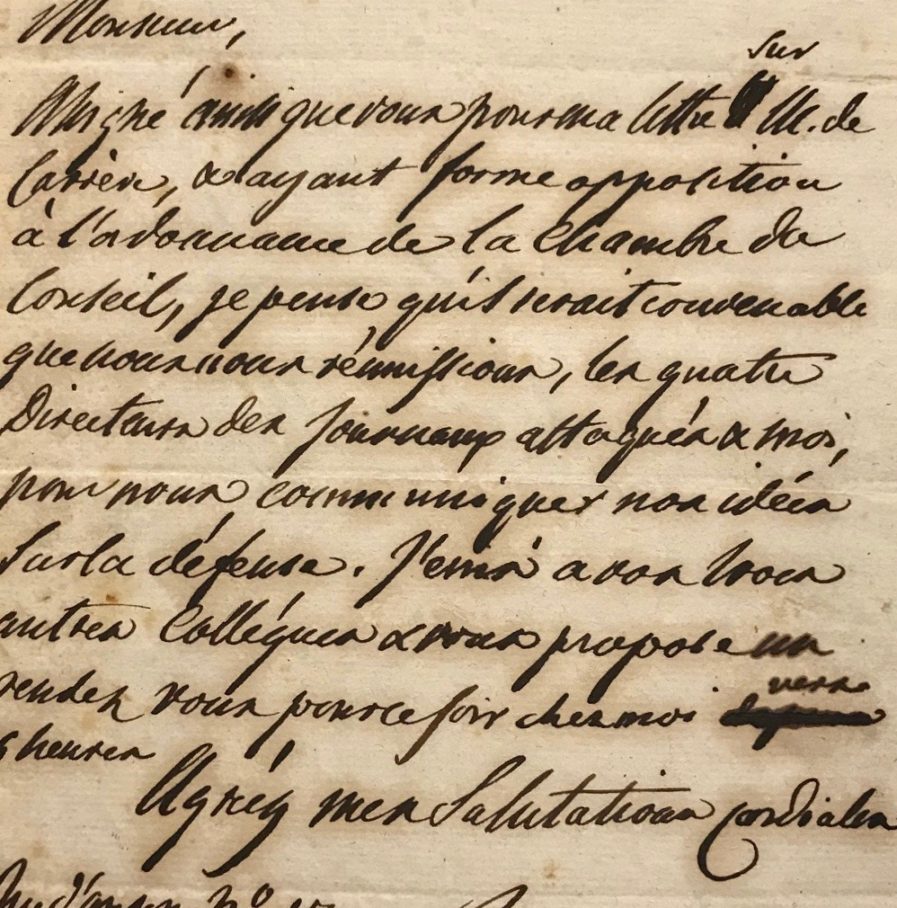 Monsieur,
sur
Assigné ainsi que vous pour ma lettre M. de
Carrère, & ayant formé opposition
à l'ordonnance de la chambre du
Conseil, je pense qu'il serait convenable
que nous nous réunissions, les quatre
Directeurs des journaux attaqués & moi,
pour nous communiquer nos idées
Sur la défense. J'écris à vos trois
autres Collégues & vous propose un
rendez vous pour ce soir chez moi vers
heures
Agréez mes Salutations cordiales